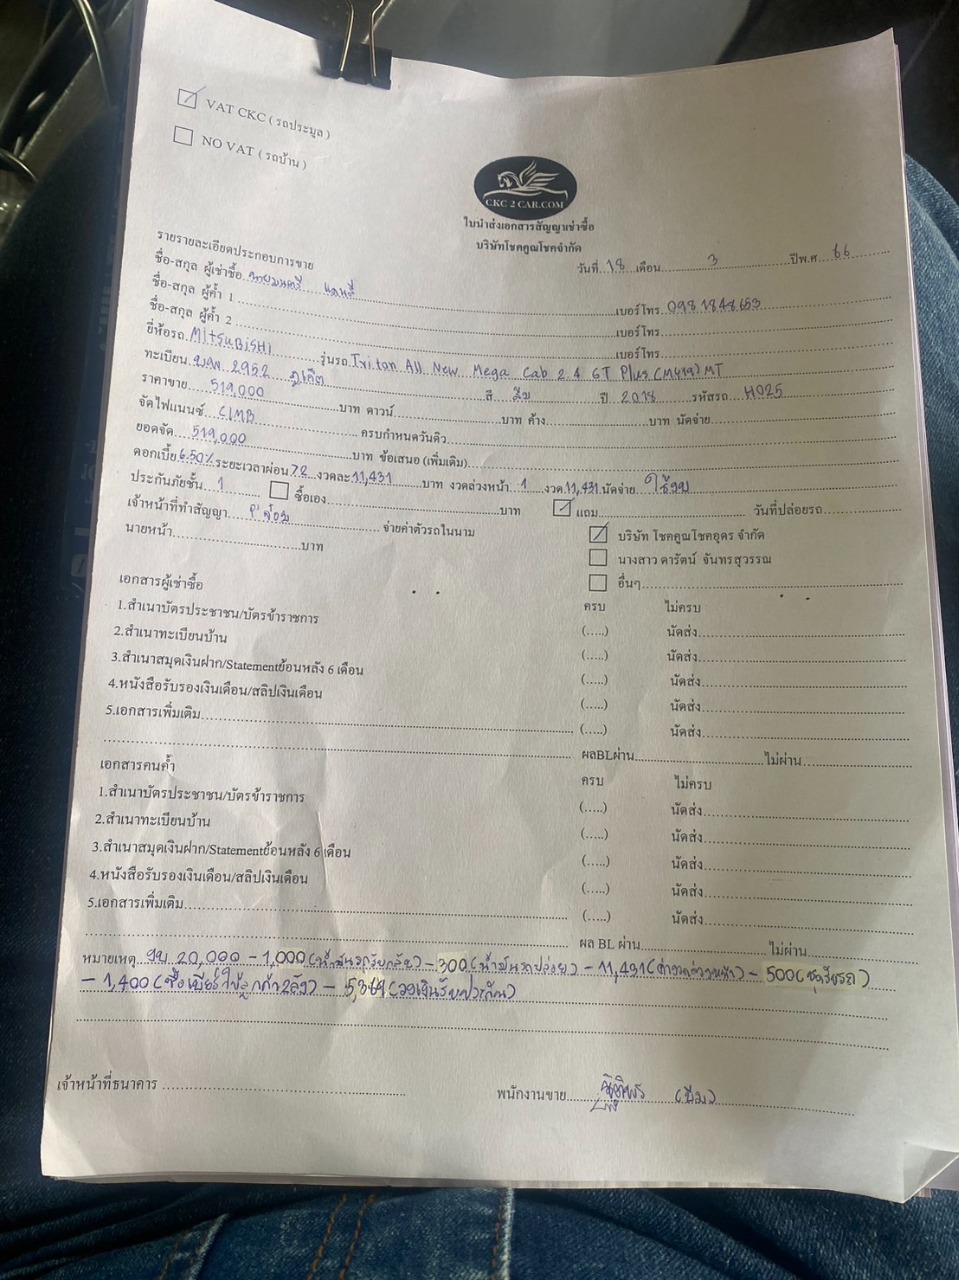 VAT CKC ( รถประมูล )
NO VAT ( รถบ้าน )
CKC 2 CAR.COM
ใบนำส่งเอกสารสัญญาเช่าซื้อ
บริษัทโชคคูณโชคจำกัด
รายรายละเอียดประกอบการขาย
วันที่ 18 เดือน 3 ปีพ.ศ 66
ชื่อ-สกุล ผู้เช่าซื้อ นายมนตรี
ชื่อ-สกุล ผู้ค้ำ 1 เบอร์โทร 0981848653
ชื่อ-สกุล ผู้ค้ำ 2 เบอร์โทร
ยี่ห้อรถ MITSUBISHI เบอร์โทร
รุ่นรถ Triton All New Mega Cab 2.4 GT Plus (MY19) MT
ทะเบียน 2952 ภูเก็ต สี ปี 2018 รหัสรถ H025
ราคาขาย 519,000 บาท ดาวน์ บาท ค้าง บาท นัดจ่าย
จัดไฟแนนซ์ CIMB ครบกำหนดวันคิว
ยอดจัด 519,000 บาท ข้อเสนอ (เพิ่มเติม)
ดอกเบี้ย 6.50% ระยะเวลาผ่อน 72 งวดละ 11,431 บาท งวดล่วงหน้า 1 งวด 11,431 นัดจ่าย ใช้งบ
ประกันภัยชั้น 1 ซื้อเอง บาท แถม วันที่ปล่อยรถ
เจ้าหน้าที่ทำสัญญา จ่ายค่าตัวรถในนาม บริษัท โชคคูณโชคอุดร จำกัด
นายหน้า บาท นางสาว ดารัตน์ จันทรสุวรรณ
อื่นๆ
เอกสารผู้เช่าซื้อ ครบ ไม่ครบ
1.สำเนาบัตรประชาชน/บัตรข้าราชการ (.....) นัดส่ง
2.สำเนาทะเบียนบ้าน (.....) นัดส่ง
3.สำเนาสมุดเงินฝาก/Statementย้อนหลัง 6 เดือน (.....) นัดส่ง
4.หนังสือรับรองเงินเดือน/สลิปเงินเดือน (.....) นัดส่ง
5.เอกสารเพิ่มเติม (.....) นัดส่ง
ผลBLผ่าน ไม่ผ่าน
เอกสารคนค้ำ ครบ ไม่ครบ
1.สำเนาบัตรประชาชน/บัตรข้าราชการ (.....) นัดส่ง
2.สำเนาทะเบียนบ้าน (.....) นัดส่ง
3.สำเนาสมุดเงินฝาก/Statementย้อนหลัง 6 เดือน (.....) นัดส่ง
4.หนังสือรับรองเงินเดือน/สลิปเงินเดือน (.....) นัดส่ง
5.เอกสารเพิ่มเติม (.....) นัดส่ง
ผล BL ผ่าน ไม่ผ่าน
หมายเหตุ งบ 20,000 - 1,000 (น้ำมันรถรับกลับ) - 300 (น้ำมันรถปล่อย) - 11,431 (ค่างวดล่วงหน้า) - 500 (ชุดรับรถ)
- 1,400 (ซื้อเบียร์ให้ลูกค้า 2 ลัง) - 5,369
เจ้าหน้าที่ธนาคาร พนักงานขาย